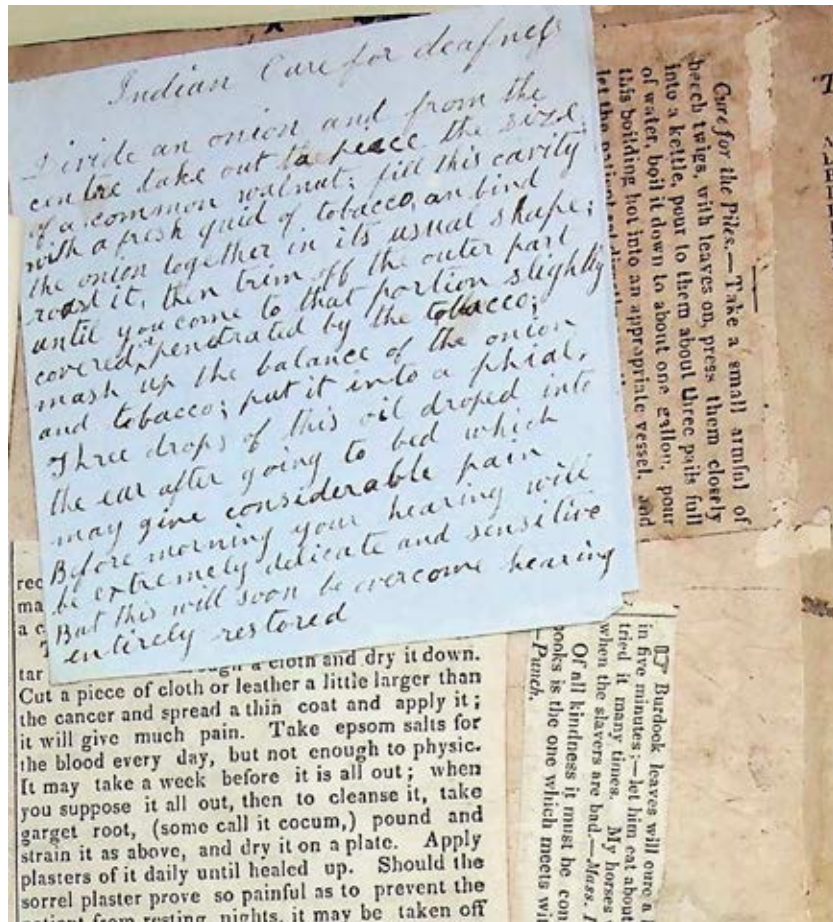 Indian Cure for deafness
Divide an onion and from the
centre take out a peace the size
of a common walnut; fill this cavity
with a fresh quid of tobacco, an bind
the onion together in its usual shape;
roast it, then trim off the outer part
until you come to that portion slightly
covered, penetrated by the tobacco;
mash up the balance of the onion
and tobacco; put it into a phial,
Three drops of this oil droped into
the ear after going to bed which
may give considerable pain
Before morning your hearing will
be extremely delicate and sensitive
But this will soon be overcome hearing
entirely restored
Cure for the Piles.—Take a small armful of
beech twigs, with leaves on, press them closely
into a kettle, pour to them about three pails full
of water, boil it down to about one gallon, pour
this boilding hot into an appropriate vessel, and
let the patient
rec
ma
tar
a cloth and dry it down.
Cut a piece of cloth or leather a little larger than
the cancer and spread a thin coat and apply it;
it will give much pain. Take epsom salts for
the blood every day, but not enough to physic.
It may take a week before it is all out; when
you suppose it all out, then to cleanse it, take
garget root, (some call it cocum,) pound and
strain it as above, and dry it on a plate. Apply
plasters of it daily until healed up. Should the
sorrel plaster prove so painful as to prevent the
patient from resting nights, it may be taken off
☞ Burdock leaves will cure a
in five minutes;—let him eat about
tried it many times. My horses
when the slavers are bad.—Mass.
Of all kindness it must be con
books is the one which meets wi
—Punch.